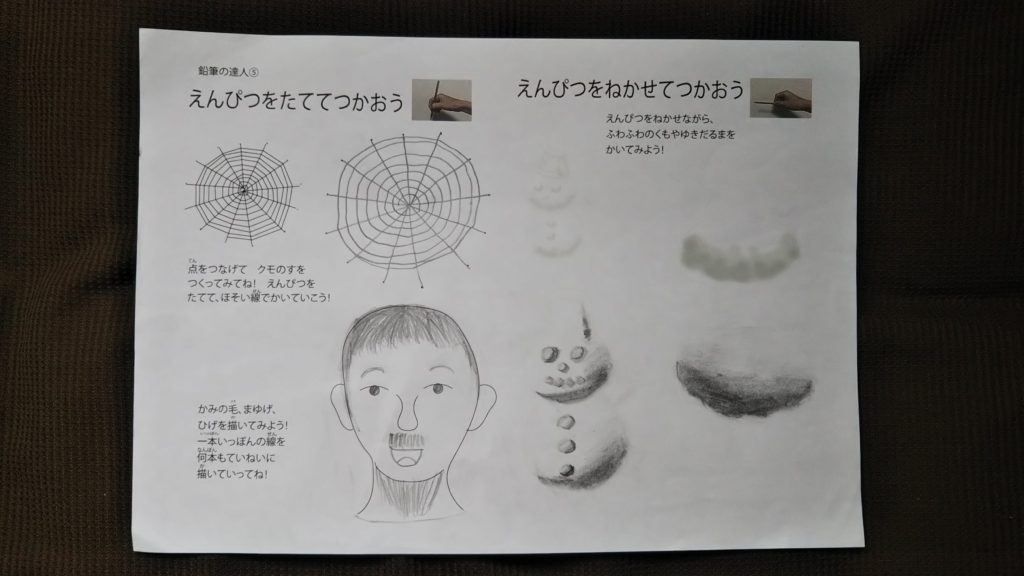 鉛筆の達人⑤
えんぴつをたててつかおう
点をつなげて　クモのすを
つくってみてね！　えんぴつを
たてて、ほそい線でかいていこう！
かみの毛、まゆげ、
ひげを描いてみよう！
一本いっぽんの線を
何本もていねいに
描いていってね！
えんぴつをねかせてつかおう
えんぴつをねかせながら、
ふわふわのくもやゆきだるまを
かいてみよう！